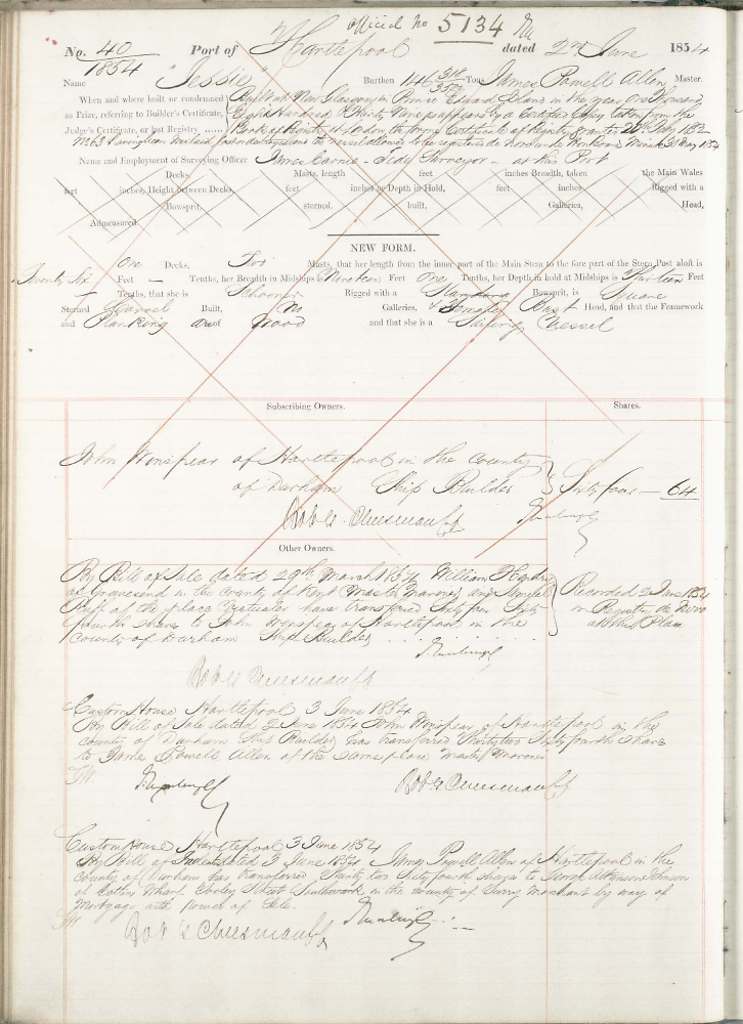 Official No 5134
No. 40 Port of Hartlepool dated 2nd June 1854
1854
Name "Jessie" Burthen 146 Tons James Powell Allen Master.
When and where built or condemned Built at New Glasgow in Prince Edward Island in the year One Thousand
as Prize, referring to Builder's Certificate, Eight Hundred & Thirty Nine as appears by a Certified Copy taken from the
Judge's Certificate, or last Registry Book of London the former Certificate of Registry granted
Name and Employment of Surveying Officer James Cairnie - Tide Surveyor - at this Port
Decks, Masts, length feet inches Breadth, taken the Main Wales
feet inches, Height between Decks, feet inches or Depth in Hold, feet inches Rigged with a
Bowsprit, sterned, built, Galleries, Head,
Admeasured
NEW FORM.
One Decks, Two Masts, that her length from the inner part of the Main Stem to the fore part of the Stern Post aloft is
Twenty Six Feet — Tenths, her Breadth in Midships is Nineteen Feet One Tenths, her Depth in hold at Midships is Thirteen Feet
— Tenths, that she is Schooner Rigged with a Standing Bowsprit, is Square
Sterned Carvel Built, No Galleries, & Female Bust Head, and that the Framework
and Planking are of Wood and that she is a Sailing Vessel
Subscribing Owners. Shares.
John Winspear of Hartlepool in the County
of Durham Ship Builder Sixty four — 64
Other Owners.
By Bill of Sale dated 29th March 1854 William
at Gravesend in the county of Kent Master Mariner and
of the place have transferred Sixty four Sixty
fourth shares to John Winspear of Hartlepool in the
County of Durham Ship Builder
Recorded 2 June 1854
on Registry de Novo
at this Place
Custom House Hartlepool 3 June 1854
By Bill of Sale dated 2 June 1854 John Winspear of Hartlepool in the
county of Durham Ship Builder has transferred Thirty two Sixty fourth shares
to James Powell Allen of the same place Master Mariner
Custom House Hartlepool 3 June 1854
By Bill of dated 3 June 1854 James Powell Allen of Hartlepool in the
county of Durham has transferred Thirty two Sixty fourth shares to George
at Wharf Tooley Street Southwark in the county of Surrey Merchant by way of
Mortgage with power of Sale.